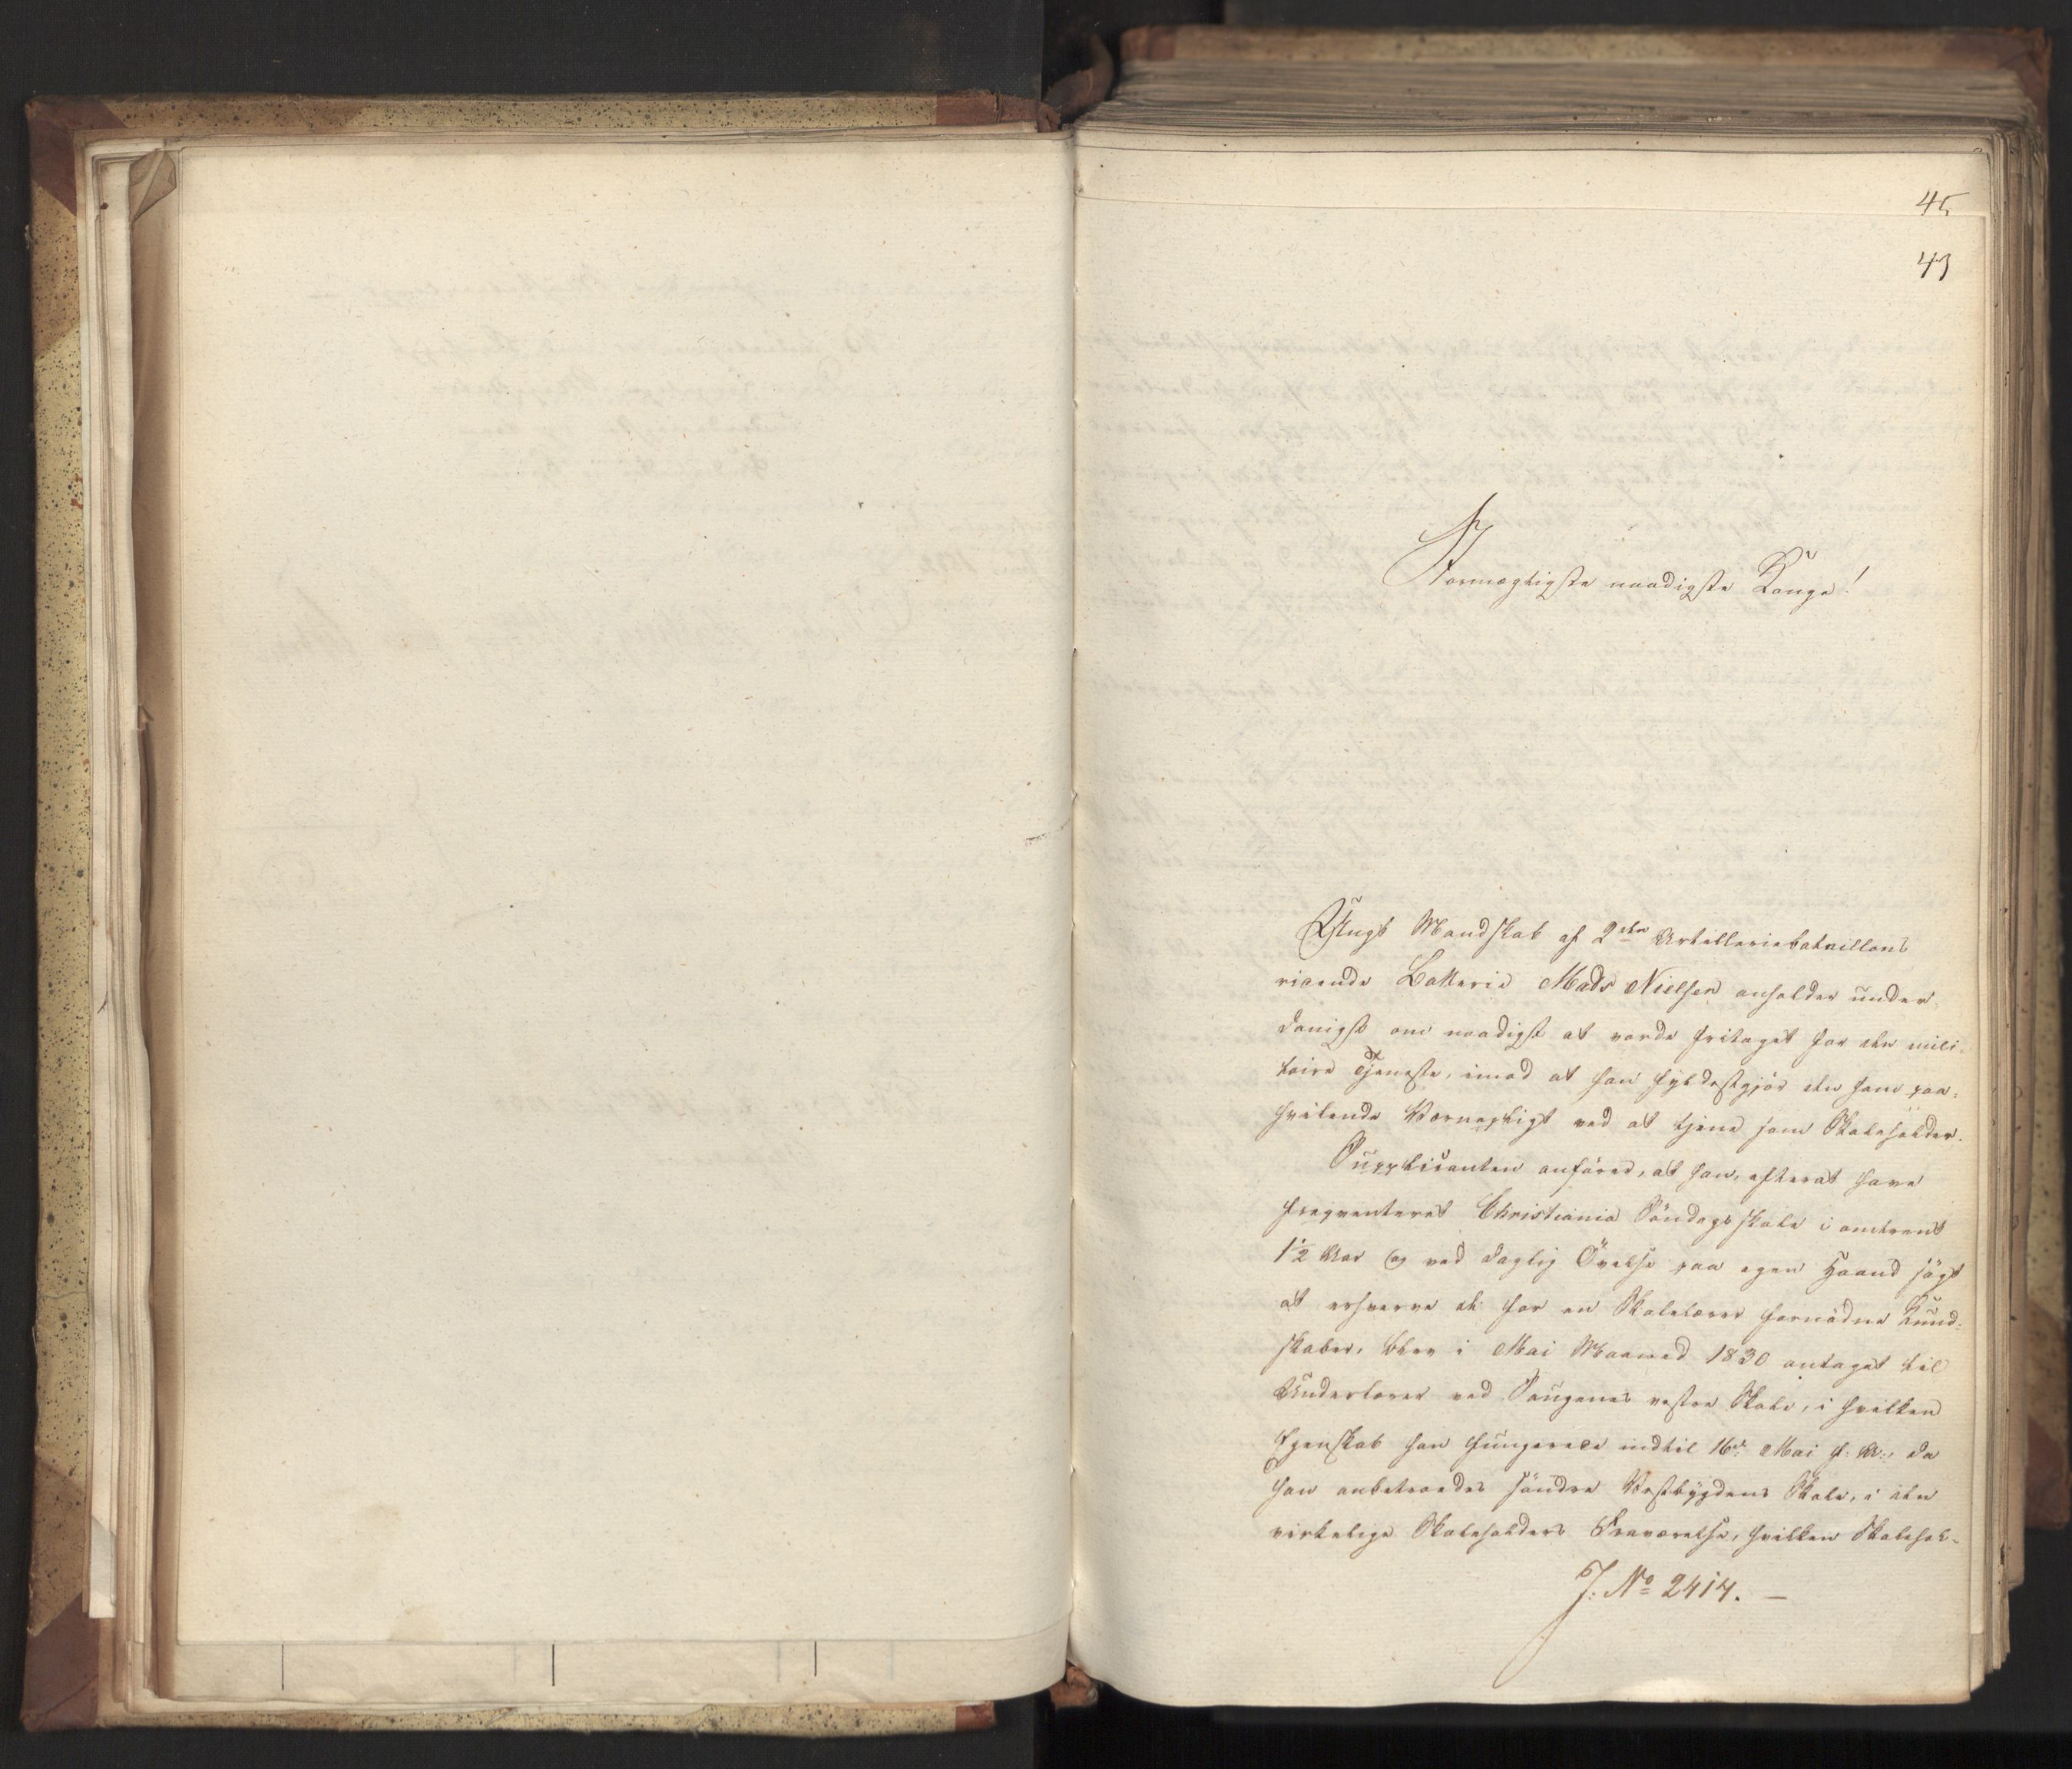 45
43
Stormægtigste naadigste Konge!
Yngst Mandskab af 2den Artilleriebataillons
ridende Batterie Mads Nielsen anholder under-
danigst om naadigst at vorde fritaget for den mili-
taire Tjeneste, imod at han fyldestgjør den ham paa-
hvilende Værnepligt ved at tjene som Skoleholder.
Supplicanten anfører, at han, efterat have
freqventeret Christiania Søndagsskole i omtrent
1½ Aar og ved daglig Övelse paa egen Haand søgt
at erhverve de for en Skolelærer fornødne Kund-
skaber, blev i Mai Maaned 1830 antaget til
Underlærer ved Sougnets vestre Skole, i hvilken
Egenskab han fungerede indtil 16de Mai f: A:, da
han anbetroedes søndre Vestbygdens Skole, i den
virkelige Skoleholders Fraværelse, hvilken Skolehol-
J: No 2414. —